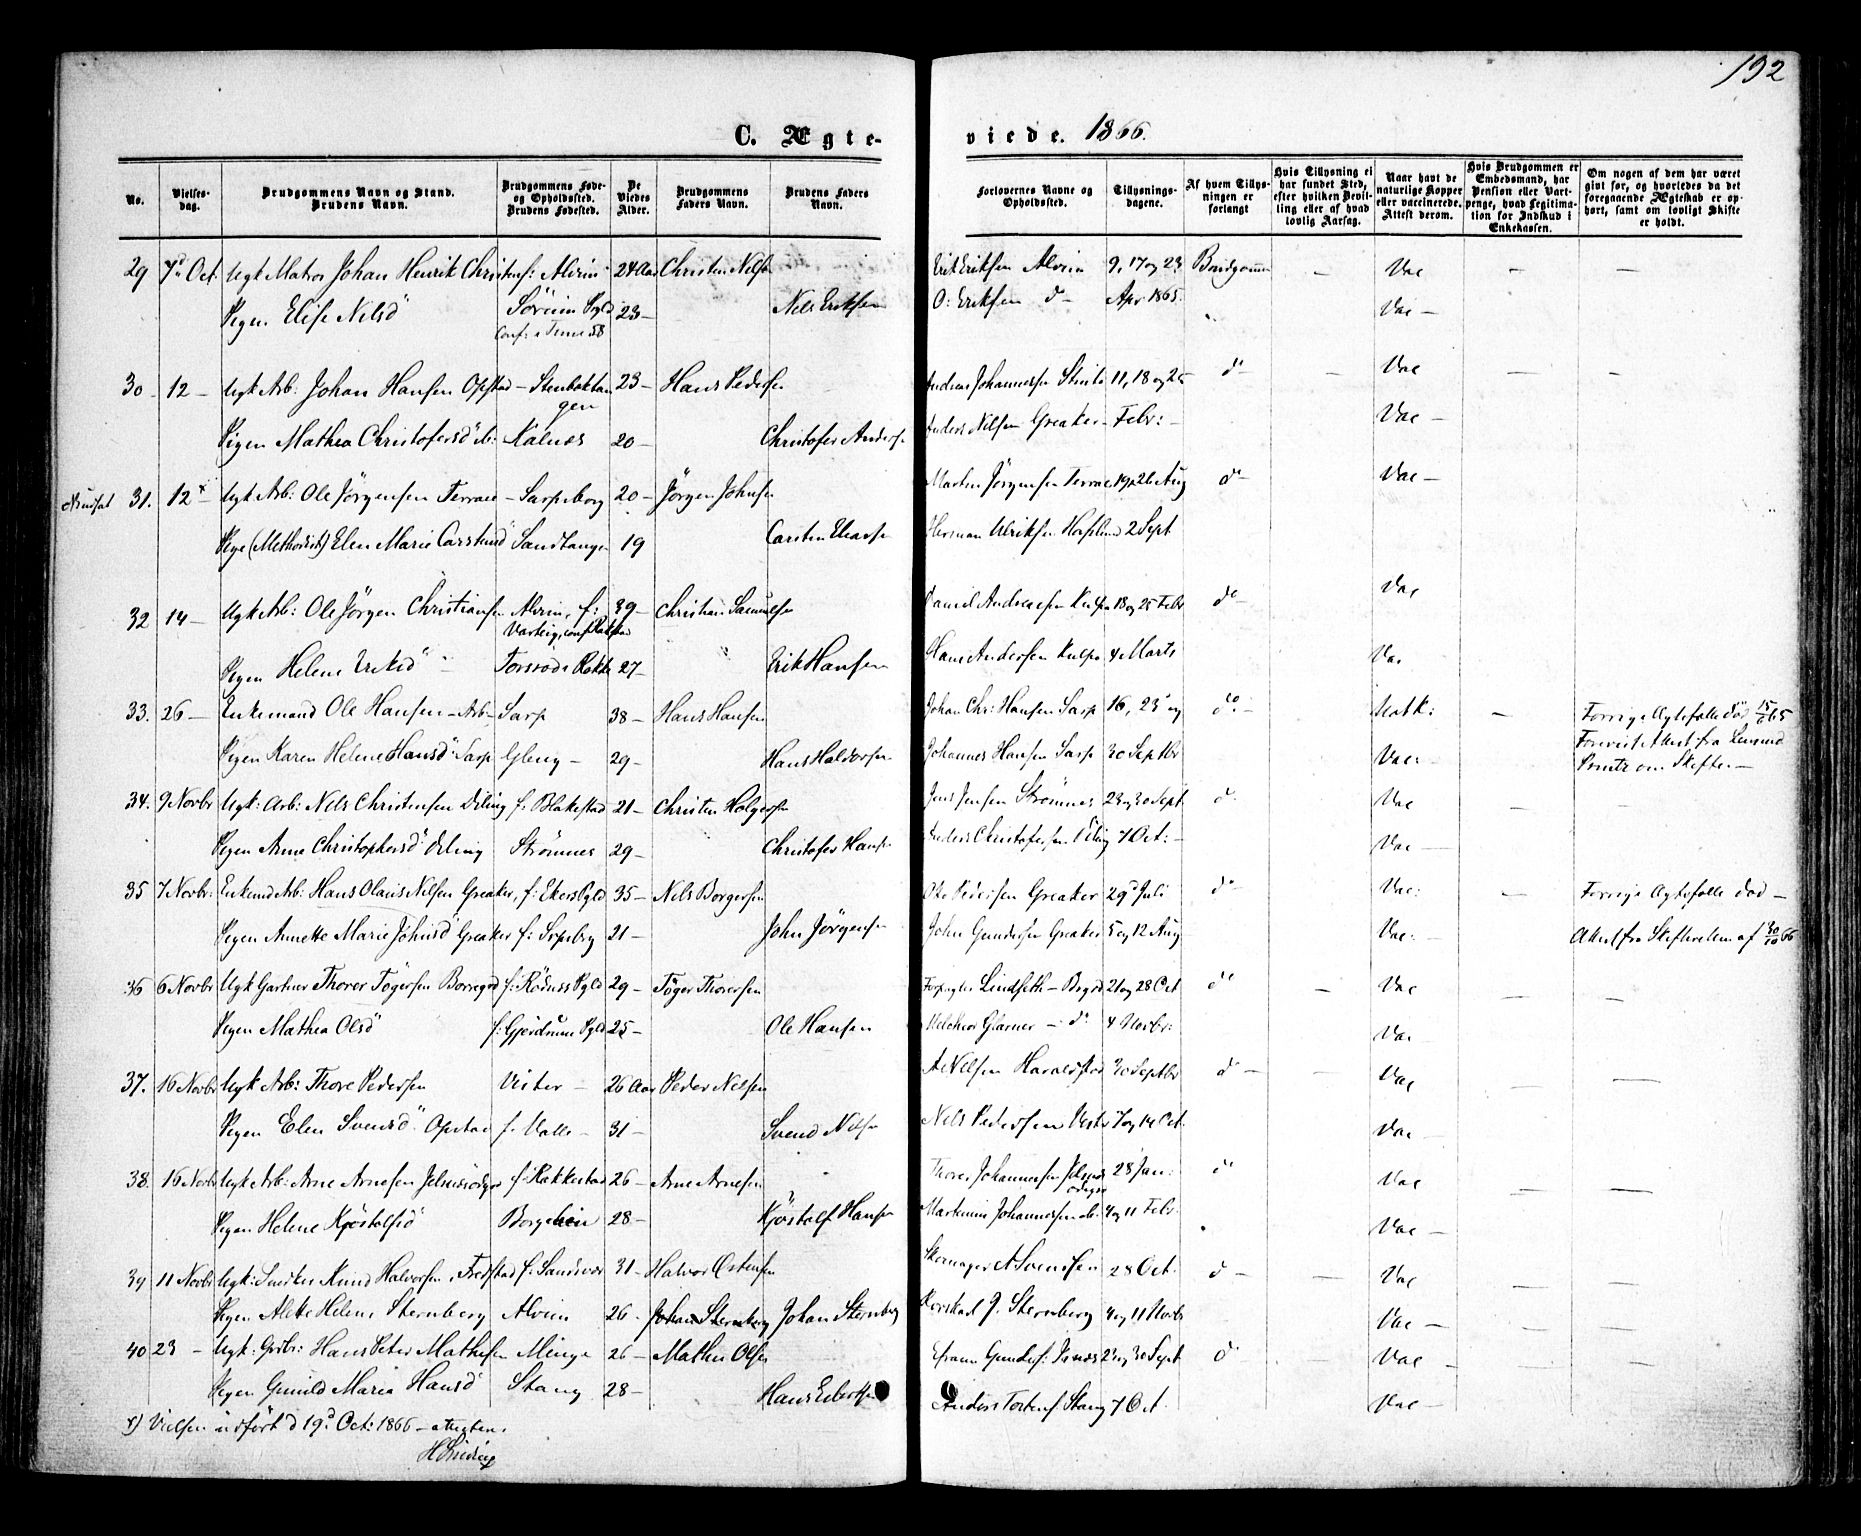 192
C. Ægte-
viede. 1866.
No.
Vielses-
dag.
Brudgommens Navn og Stand.
Brudens Navn.
Brudgommens Føde-
og Opholdssted.
Brudens Fødested.
De
Viedes
Alder.
Brudgommens
Faders Navn.
Brudens Faders
Navn.
Forlovernes Navne og
Opholdssted.
Tillysnings-
dagene.
Af hvem Tillys-
ningen er
forlangt
Hvis Tillysning ei
har fundet Sted,
efter hvilken Bevil-
ling eller af hvad
lovlig Aarsag.
Naar havt de
naturlige Kopper
eller vaccinerede.
Attest derom.
Hvis Brudgommen er
Embedsmand, har
Pension eller Vart-
penge, hvad Legitima-
tion for Indskud i
Enkekassen.
Om nogen af dem har været
gift før, og hvorledes da det
foregaaende Ægteskab er op-
hørt, samt om lovligt Skifte
er holdt.
29 7d Oct. Ugk Matros Johan Henrik Christensf: Alvim 24 Aar Christen Nilss Erik Eriksen Alvim 9, 17 og 23 Brudgommen — Vac — —
Pigen Elise Nilsd Sørum Pgld 23 — Nels Eriksen O: Eriksen do — Apr. 1865. Vac —
Conf: i Tune 58
30 12 — Ugk Arb: Johan Hansen Opstad — Stenboktan 23 — Hans Pedersen Andreas Johannessen 11, 18 og 25 do — Vac — —
gen
Pigen Mathea Christofersd ib: Kalnes 20 — Christofer Anders Anders Nilsen Greaker — Febr: — Vac —
31. 12 x Ugk Arb: Ole Jörgensen Terrae — Sarpsborg 20 — Jörgen Johnsen Martin Jörgensen Terrae 19, 26 Aug do — Vac —
Pige (Methodist) Elen Marie Carstensd Sandtangen 19 Carsten Herman Ulriksen Hafslund 2 Sept
32 14 — Ugk Arb: Ole Jörgen Christiansen Alvim, f: 39 — Christian Samuelsen Daniel Andreasen Kulpe 18 og 25 Febr do — Vac
Varteig, conf Rakstad
Pigen Helene Eriksd Torsrød i Rakke 27 — Erik Hansen Hans Andersen Kulpe 4 Marts Vac
33. 26 — Enkemand Ole Hansen — Arb — Sarp 38 — Hans Hansen Johan Chr: Hansen Sarp 16, 23 og do. — — Forrige Ægtefælle död 15/6 65
Forevist Attest fra Lensmd
Pigen Karen Helene Hansd Sarp Gleng — 29 — Hans Haldorsen Johannes Hansen Sarp 30 Septbr Vac: — om Skiftet —
34. 9 Novbr Ugk: Arb: Nels Christensen Örling f: Blakestad 21 — Christen Holgersen Jens Jensen Strømnes 23 og 30 Sept. do Vac — —
Pigen Anne Christophersd Örling Strømnes 29 — Christofer Hans Anders Christofersen Örling 7 Oct: — Vac —
35 7 Novbr: Enkemd Arb: Hans Olaus Nilsen Greaker, f: Ekers Pgld 35 — Nils Borgersen Ole Pedersen Greaker 29 Juli do — Vac: — Forrige Ægtefælle död —
Pigen Annette Marie Johnsd Greaker f: Srpsbrg 21 — John Jörgensen John Gundersen Greaker 5 og 12 Aug Vac: — Attest fra Skifteretten af 30/10 66
36 6 Novbr Ugk Gartner Thorer Tögersen Borregrd f: Rödness Pgld 29 — Töger Thorersen Forpagter Lindseth — Brgrd 21 og 28 Oct do — Vac — —
Pigen Mathea Olsd f: Gjerdrum Pgld 25 — Ole Hansen Melchior Glarner — do 4 Novbr: Vac —
37. 16 Novbr Ugk Arb: Thore Pedersen Vister — 26 Aar Peder Nilsen A: Nilsen Haraldstad 30 Septbr do — — Vac — —
Pigen Elen Svensd Opstad f. Valle — 31 — Svend Nilsen Nels Pedersen Vister 7 og 14 Oct. Vac —
38. 16 Novbr Ugk Arb: Arne Arnesen f: Rakkestad 26 — Arne Arnesen Thorer Johannesen 28 Jan: do Vac — —
Pigen Helene Kjöstolfsd Borgehein 28 — Kjöstolf Hansen Martinius Johannessen ib. 4 og 11 Febr. Vac —
39 11 Novbr Ugk: Snedker Knud Halvorsen, Fredstad f: Sandsvær 31 — Halvor Östensen Skomager A Svensen 28 Oct. do — — Vac — —
Pigen Alette Helene Sternberg Alvim 26. Johan Sternberg Johan Sternberg J. Sternberg 4 og 11 Novbr Vac — — —
40 23 — Ugk: Grdbr: Hans Peter Mathisen Minge 26 — Mathis Olsen Efraim Gunders: 23 og 30 Sept do — Vac — —
Pigen Gunild Maria Hansd Stang 28 — Hans Anders Torkels Stang 7 Oct. Vac —
x) Vielsen udført d 19d Oct: 1866 — attesteres.